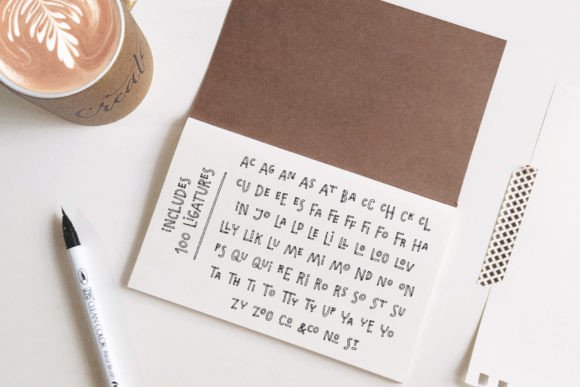 INCLUDES
100 LIGATURES
AC AG AN AS AT BA CC CH CK CL
CU DE EE ES FA FE FF FI FO FR HA
IN JO LA LD LE LI LL LO LOO LOV
LLY LIK LU ME MI MO ND NO ON
PS QU QUI RE RI RO RS SO ST SU
TA TH TI TO TTY TY UP YA YE YO
ZY ZOO CO &CO NO ST
ZIG CLEAN COLOR Real Brush